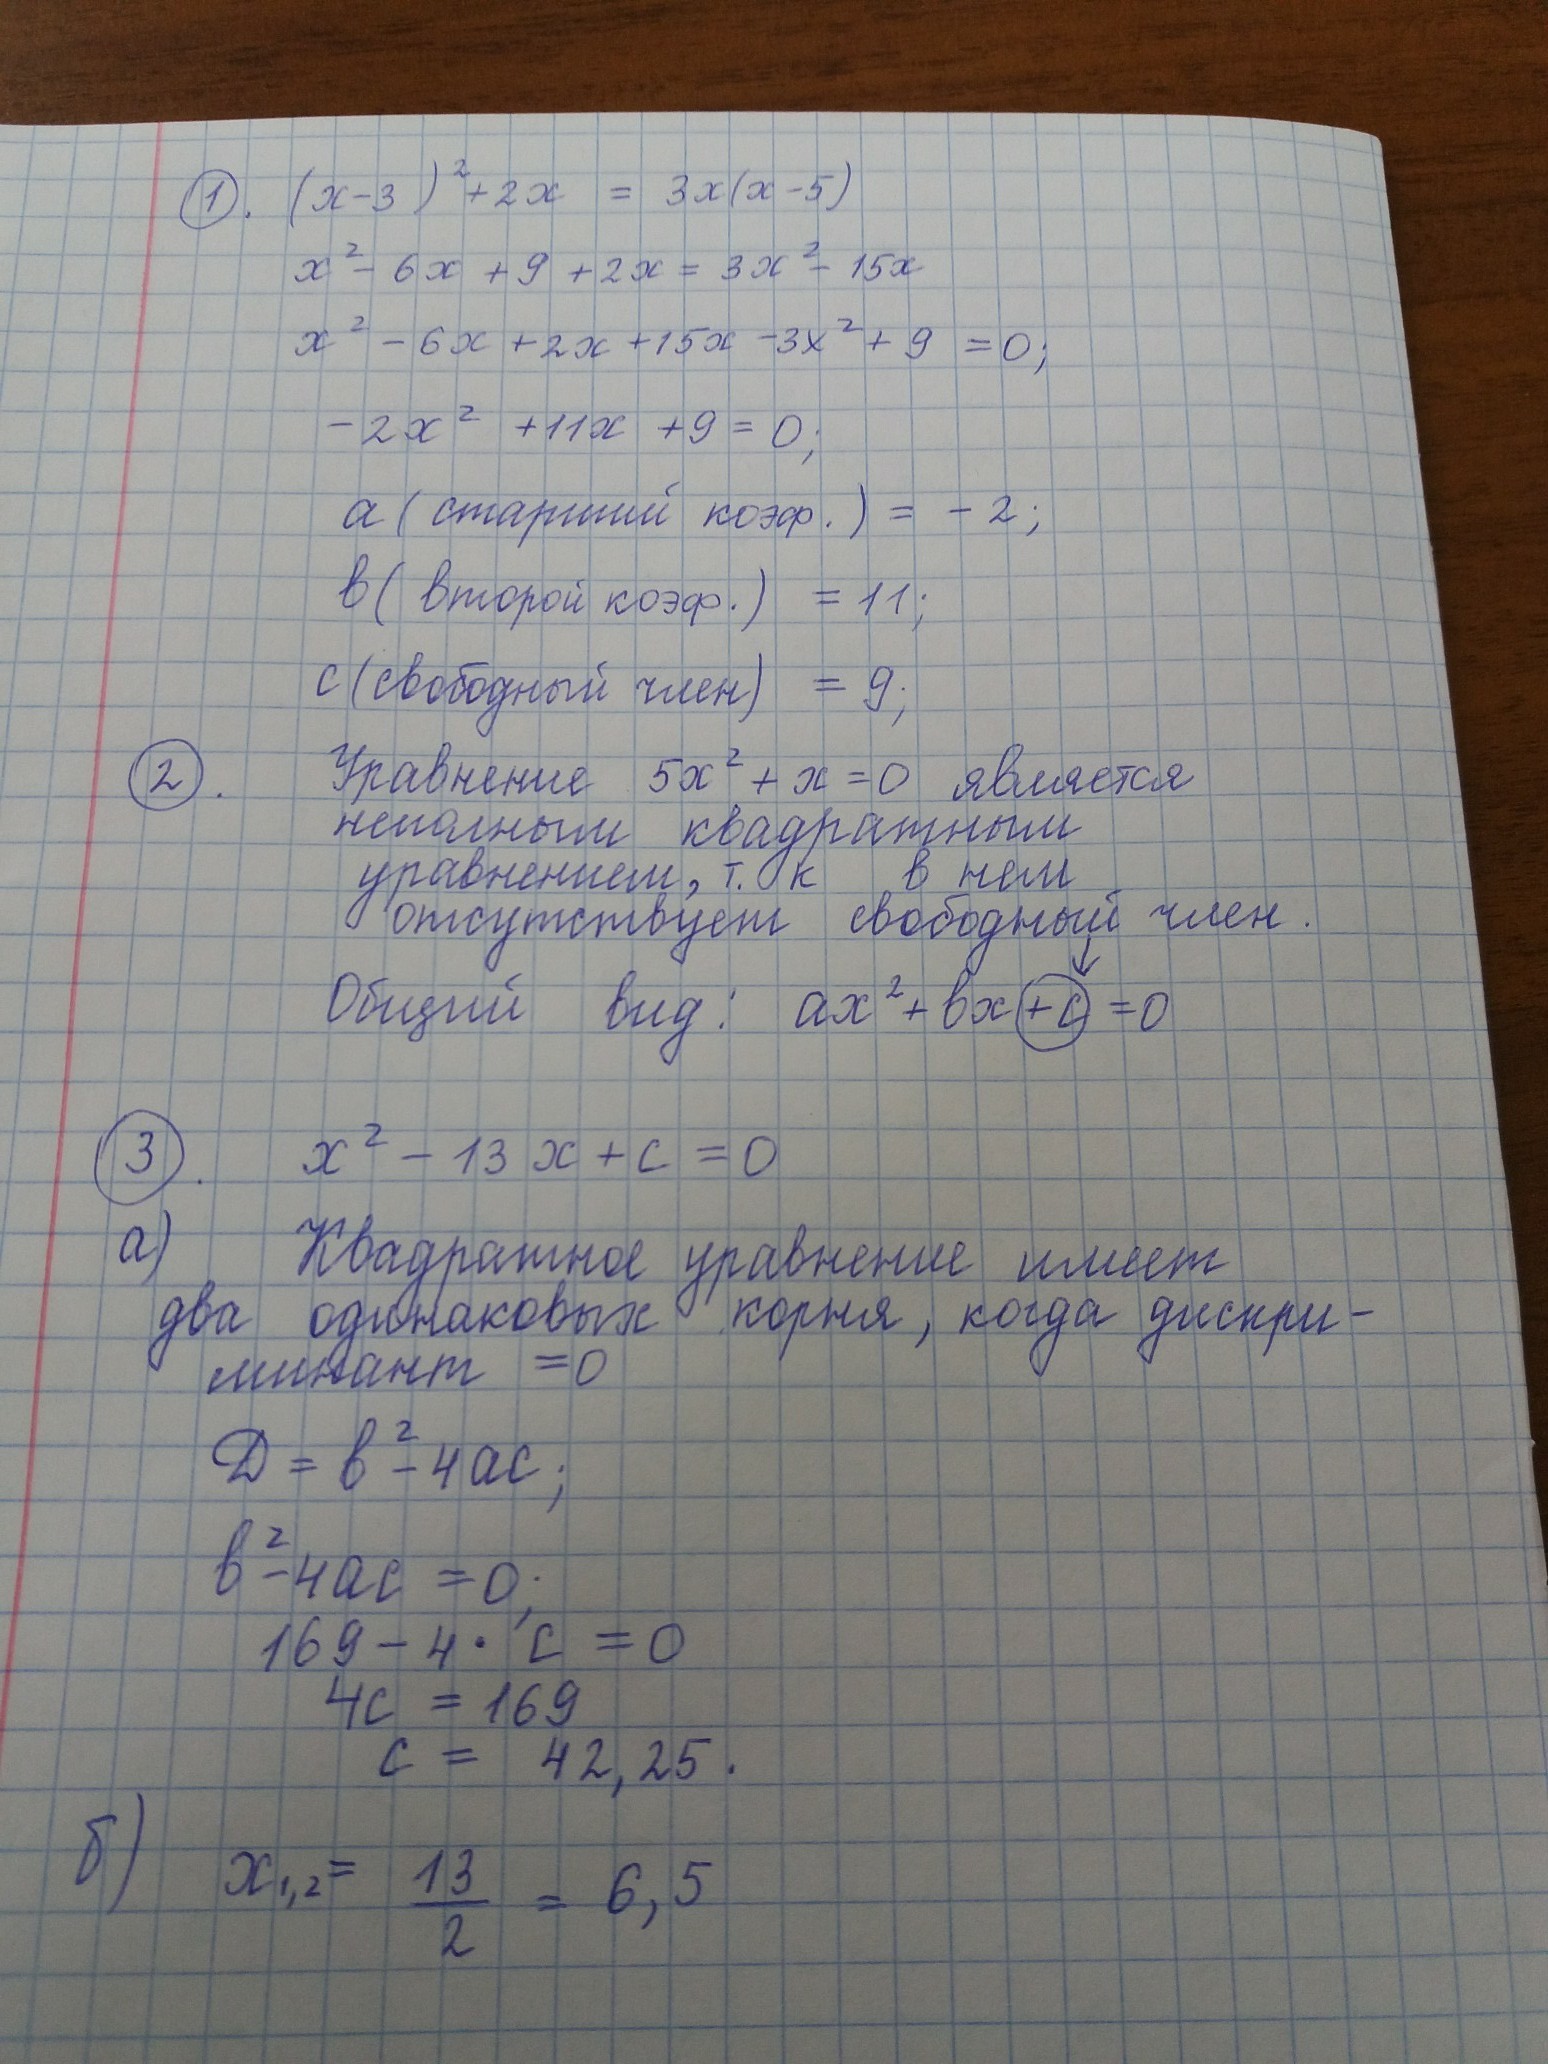 1. (x-3)² + 2x = 3x(x-5)
x² - 6x + 9 + 2x = 3x² - 15x
x² - 6x + 2x + 15x - 3x² + 9 = 0;
-2x² + 11x + 9 = 0;
a (старший коэф.) = -2;
в (второй коэф.) = 11;
с (свободный член) = 9;
2. Уравнение 5x² + x = 0 является
неполным квадратным
уравнением, т. к в нем
отсутствует свободный член.
Общий вид: ax² + вx + c = 0
3. x² - 13x + c = 0
а) Квадратное уравнение имеет
два одинаковых корня, когда дискри-
минант = 0
Д = в² - 4ас;
в² - 4ас = 0;
169 - 4 · с = 0
4с = 169
с = 42,25.
б) x₁,₂ = 13/2 = 6,5